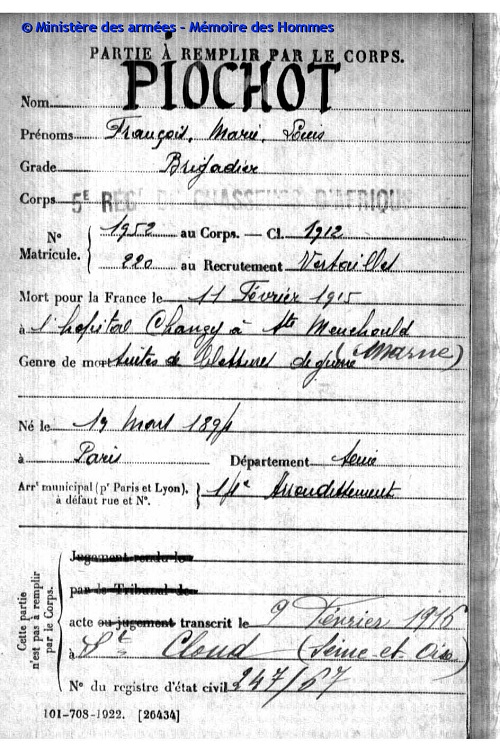 © Ministère des armées - Mémoire des Hommes
PARTIE À REMPLIR PAR LE CORPS.
Nom PIOCHOT
Prénoms François, Marie, Louis
Grade Brigadier
Corps 5E REGt DE CHASSEURS D'AFRIQUE
N° Matricule. { 1952 au Corps. — Cl. 1912
220 au Recrutement Versailles
Mort pour la France le 11 Février 1915
à l'hopital Changy à Ste Menehould
(Marne)
Genre de mort suites de blessures de guerre
Né le 19 Mars 1894
à Paris Département Seine
Arrt municipal (pr Paris et Lyon), à défaut rue et N°. } 14e Arrondissement
Cette partie n'est pas à remplir par le Corps.
Jugement rendu le
par le Tribunal de
acte ou jugement transcrit le 9 Février 1916
à St Cloud (Seine-et-Oise)
N° du registre d'état civil 247/67
101-708-1922. [26434]